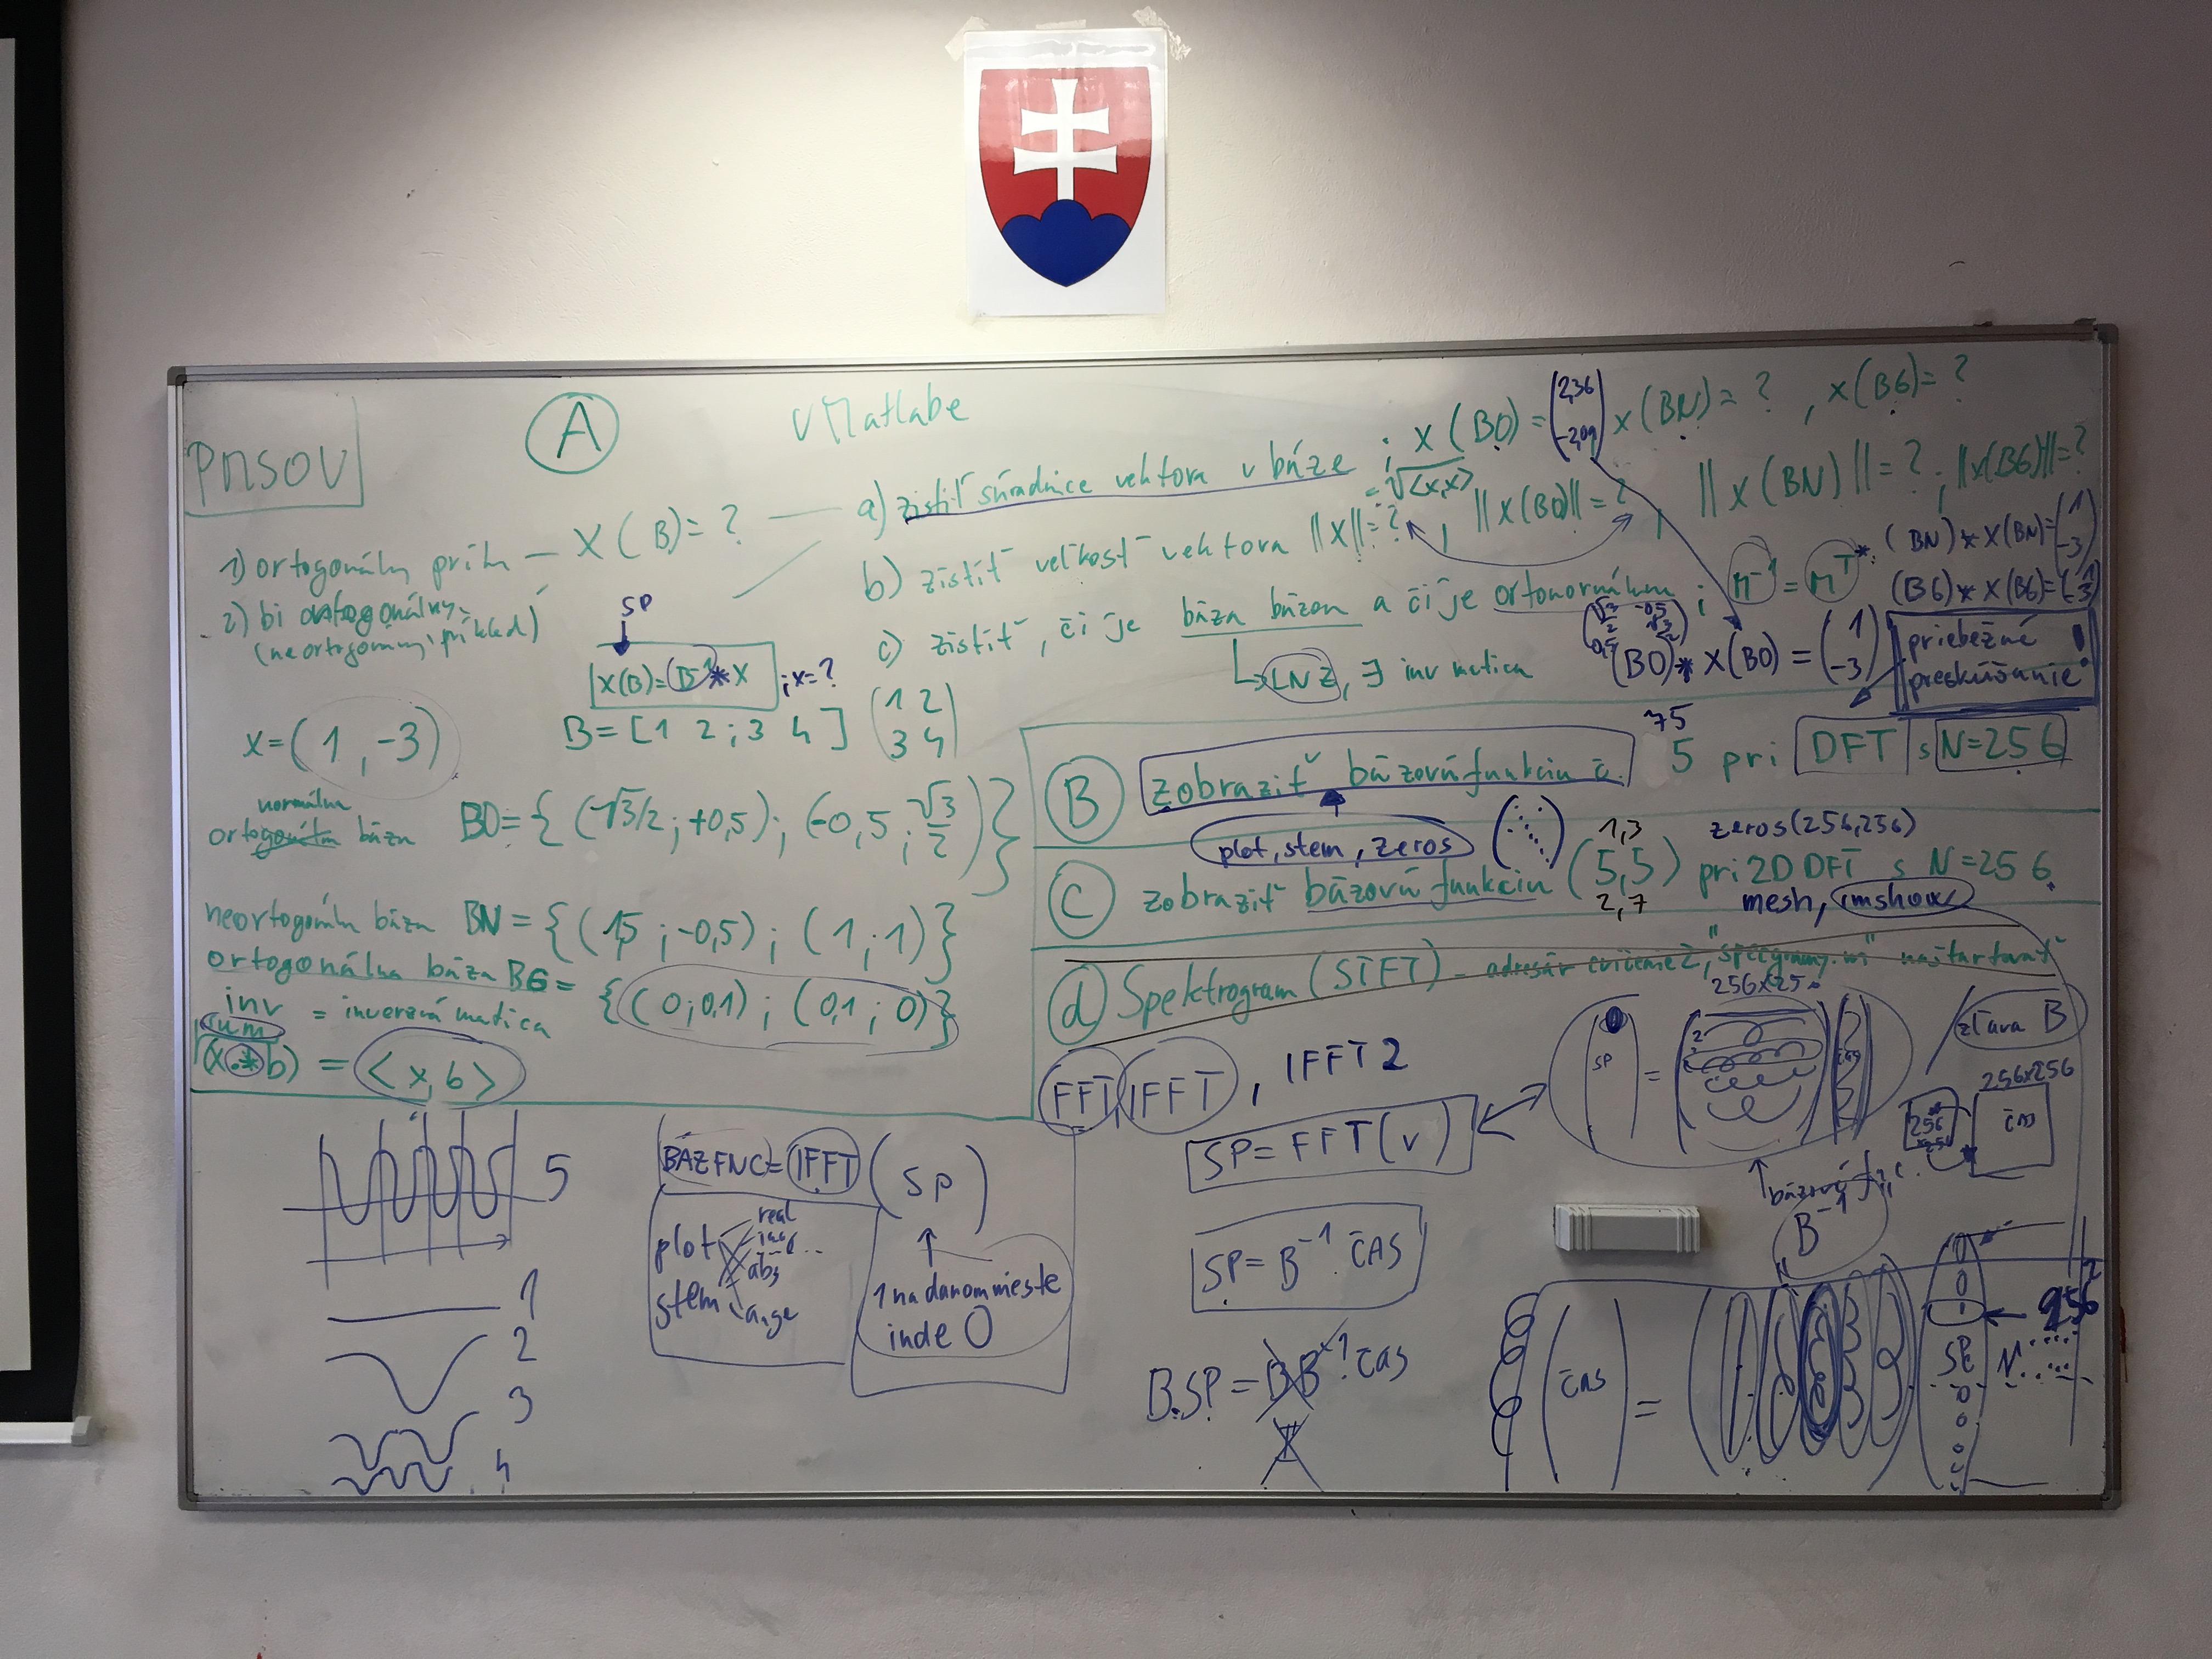 PNSOV
A
V Matlabe
1) ortogonálny prík – X(B)=?
2) bi ortogonálny
(neortogonálny príklad)
a) zistiť súradnice vektora v báze ; X(BO)= (2,36 -2,09) X(BN)=? , X(BG)=?
=√<x,x>
b) zistiť veľkosť vektora ||X||=? , ||X(BO)||=? , ||X(BN)||=? ; ||X(BG)||=?
c) zistiť, či je báza bázou a či je ortonormálna ; M⁻¹ = Mᵀ*
LNZ, ∃ inv matica
(BN)*X(BN)=(1 -3)
(BG)*X(BG)=(1 -3)
√3/2 -0,5
0,5 √3/2
(BO)*X(BO)=(1 -3)
priebežné
preskúšanie !
SP
X(B)=B⁻¹*X ; x=?
x=(1,-3)
B=[1 2;3 4]
(1 2
3 4)
normálna
ortogonálna báza BO={(√3/2;+0,5);(-0,5;√3/2)}
neortogonálna báza BN={(1,5;-0,5);(1;1)}
ortogonálna báza BG={(0;0,1);(0,1;0)}
inv = inverzná matica
sum
(x.*b) = <x,b>
B zobraziť bázovú funkciu č. 5 pri DFT s N=256
75
plot, stem, zeros
1,3
zeros(256,256)
C zobraziť bázovú funkciu (5,5) pri 2D DFT s N=256
2,7
mesh, imshow
d Spektrogram (STFT) – adresár cvičenie2, naštartovať
FFT, IFFT, IFFT2
SP=FFT(v)
SP = čas
zľava B
256x256
čas
bázové
B⁻¹
SP=B⁻¹.ČAS
B.SP=BB⁻¹.čas
I
5
1
2
3
4
BÁZFNC=IFFT(SP)
plot
stem
real
abs
1 na danom mieste
inde 0
čas =
0
0
1
SP
0
0
0
256
N